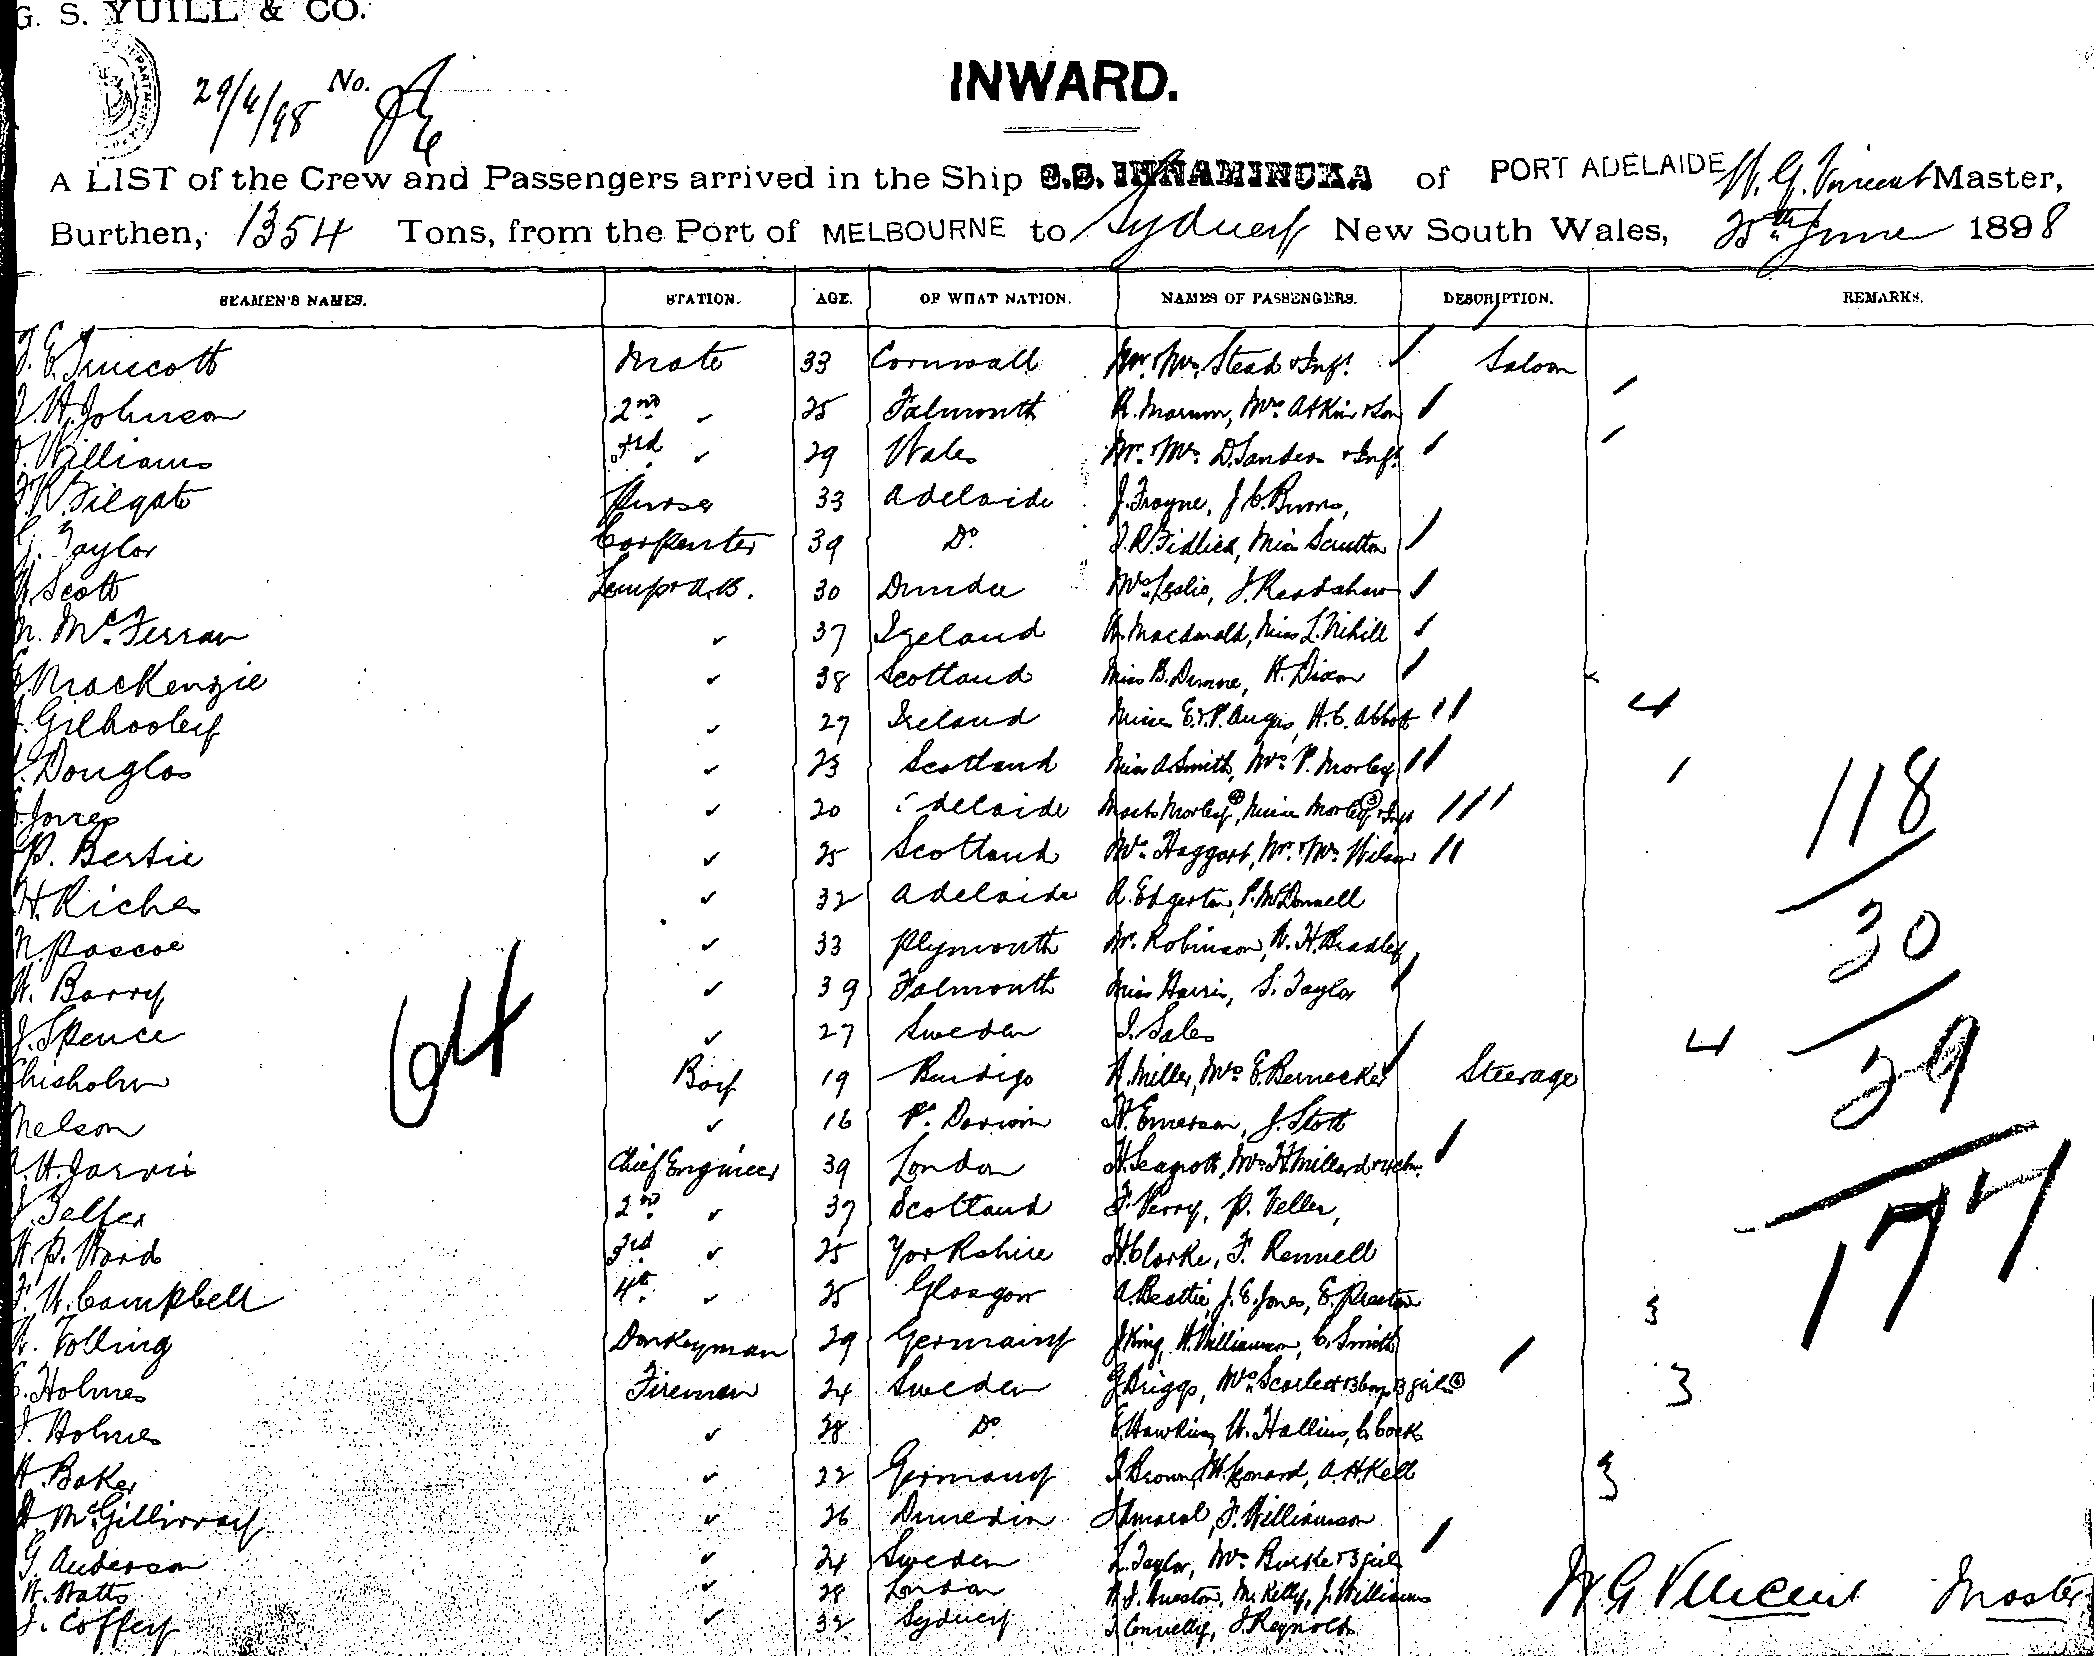 G. S. YUILL & CO.
29/6/98 No.
INWARD.
A LIST of the Crew and Passengers arrived in the Ship S.S. INNAMINCKA of PORT ADELAIDE W. G. Vincent Master,
Burthen, 1354 Tons, from the Port of MELBOURNE to Sydney New South Wales, 25th June 1898
SEAMEN'S NAMES. STATION. AGE. OF WHAT NATION. NAMES OF PASSENGERS. DESCRIPTION. REMARKS.
Truscott Mate 33 Cornwall Mr. & Mrs. Stead & Inft. Saloon
H. Johnson 2nd 25 Falmouth R. Marum, Mrs. Atkin & Son
Williams 3rd 29 Wales Mr. & Mrs. D. Sanders & Inft.
Filgate Purser 33 Adelaide J. Frayne, J. C. Burns,
Taylor Carpenter 39 Do. Fidlick, Miss Scrutton
Scott Lamps & A.B. 30 Dundee Mrs. Leslie, J. Readshaw
McFerran 37 Ireland Macdonald, Miss L. Nihill
MacKenzie 38 Scotland Miss B. Dunne, H. Dixon
Gilhooley 27 Ireland Misses E. & P. Angas, H. C. Abbott 4
Douglas 23 Scotland Miss A. Smith, Mrs. P. Morley
Jones 20 Adelaide Morley 4, Misses Morley 3 & Inft
118
P. Bertie 25 Scotland Mrs. Haggart, Mr. & Mrs. Wilson
H. Riches 32 Adelaide A. Edgerton, P. McDonnell
30
Pascoe 33 Plymouth Mr. Robinson, W. H. Bradley
W. Barry 39 Falmouth Miss Harris, S. Taylor
64
J. Spence 27 Sweden Sales 4
29
Chisholm Boy 19 Bendigo Miller, Mrs. E. Bernecker Steerage
Nelson 16 Pt. Darwin Emerson, J. Stott
H. Jarvis Chief Engineer 39 London H. Seagrott, Mrs. H. Millard & 4 chn.
177
Telfer 2nd 37 Scotland F. Perry, P. Veller,
W. P. Ward 3rd 25 Yorkshire H. Clarke, F. Rennell
F. W. Campbell 4th 25 Glasgow A. Beattie, J. E. Jones, E. Preston 3
Tolling Donkeyman 29 Germany J. King, H. Williamson, C. Smith
Holmes Fireman 24 Sweden G. Briggs, Mrs. Scarlett & 3 boys & 3 girls 6 3
Holmes 28 Do. E. Hawkins, W. Hallins, C. Cock
Baker 22 Germany Brown, Leonard, A. H. Kell 3
McGillivray 26 Dunedin F. Williamson
G. Anderson 24 Sweden L. Taylor, Mrs. Burke & 3 girls
W. Watts 28 London M. Kelly, J. Williams W G Vincent Master
J. Coffey 32 Sydney J. Connelly, J. Reynolds